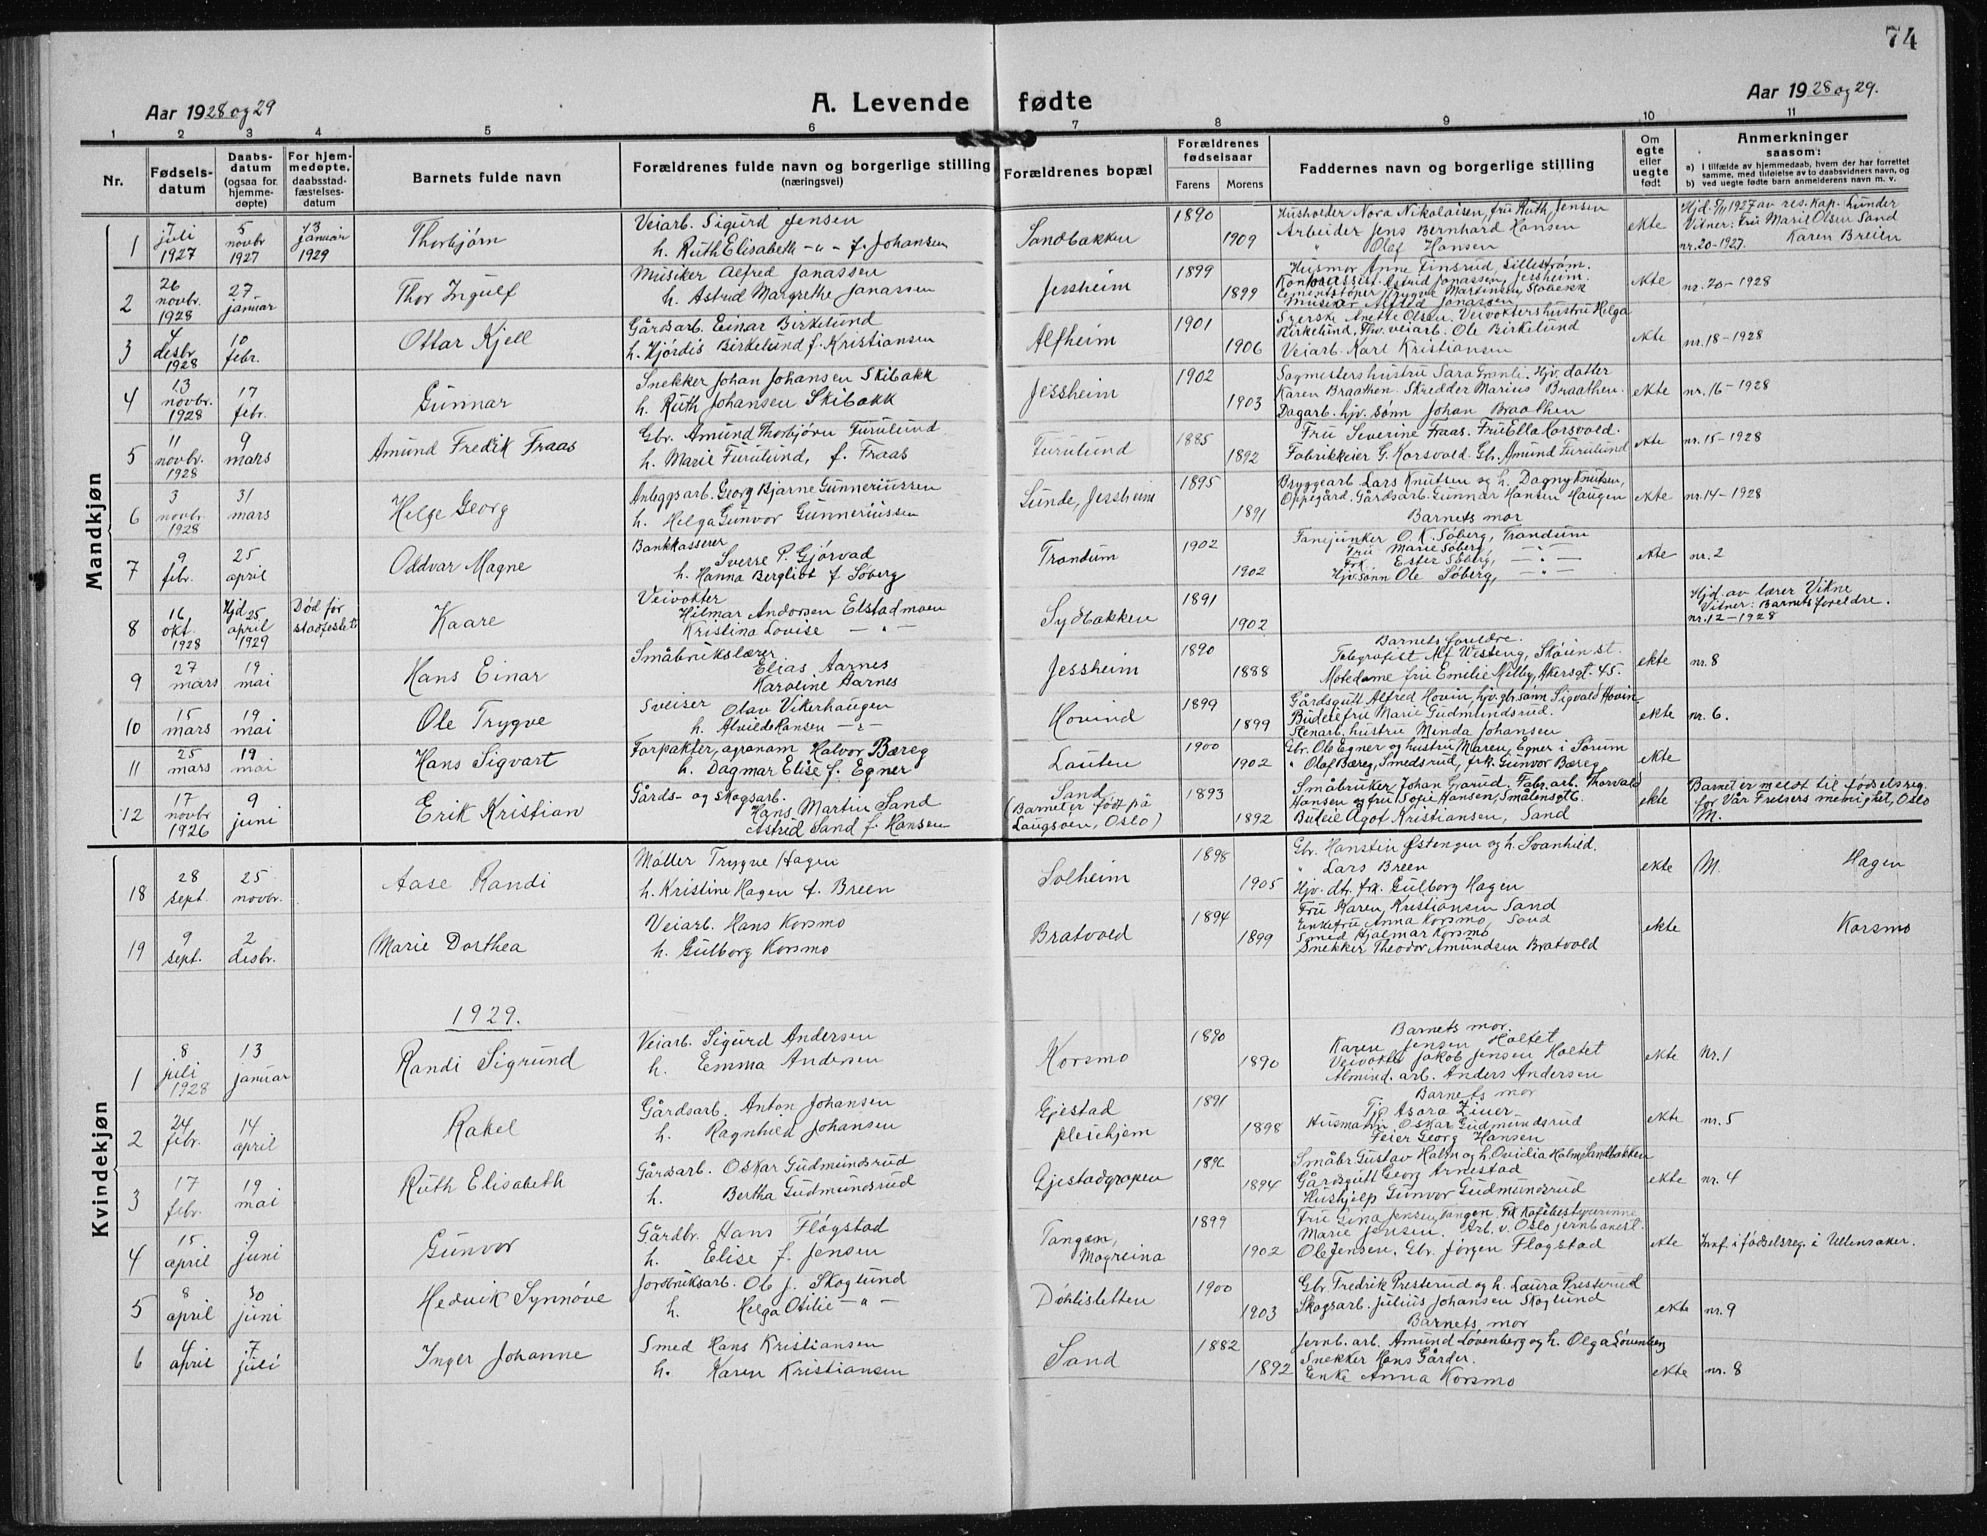 74
Aar 1928 og 29
A. Levende fødte
Aar 1928 og 29.
1 2 3 4 5 6 7 8 9 10 11
Nr.
Fødsels-
datum
Daabs-
datum
(ogsaa for
hjemme-
døpte)
For hjem-
medøpte,
daabsstad-
fæstelses-
datum
Barnets fulde navn
Forældrenes fulde navn og borgerlige stilling
(næringsvei)
Forældrenes bopæl
Forældrenes
fødselsaar
Farens Morens
Faddernes navn og borgerlige stilling
Om
egte
eller
uegte
født
Anmerkninger
saasom:
a) I tilfælde av hjemmedaab, hvem der har forrettet
samme, med tilføielse av to daabsvidners navn, og
b) ved uegte fødte barn anmelderens navn m. v.
Mandkjøn
1
7 juli 1927
5 novbr 1927
13 januar 1929
Thorbjørn
Veiarb. Sigurd Jensen
h. Ruth Elisabeth -"- f. Johansen
Sandbakken
1890
1909
Husholder Nora Nikolaisen, fru Ruth Jensen
Arbeider Jens Bernhard Hansen
" Olaf Hansen
ekte
Hjd. 5/11 1927 av res. kap. Lunder
Vitner: Fru Marie Olsen Sand
nr. 20-1927. Karen Breien
2
26 novbr. 1928
27 januar
Thor Ingulf
Musiker Alfred Janassen
h. Astrid Margrethe Janassen
Jessheim
1899
1899
Husmor Anne Finsrud, Lillestrøm.
Kontorassist. Astrid Jonassen, Jessheim.
Cementstøper Trygve Martinsen, Slobekk
Musiker Alfred Janassen
ekte
nr. 20-1928
3
4 desbr 1928
10 febr.
Ottar Kjell
Gårdsarb. Einar Birkelund
h. Hjørdis Birkelund f. Kristiansen
Alfheim
1901
1906
Syerske Anette Olsen. Veivokters hustru Helga
Birkelund, Thv. veiarb. Ole Birkelund
Veiarb. Karl Kristiansen
ekte
nr. 18-1928
4
13 novbr. 1928
17 febr.
Gunnar
Snekker Johan Johansen Skibakk
h. Ruth Johansen Skibakk
Jessheim
1902
1903
Sagmestershustru Sara Granli. Hjv. datter
Karen Braathen. Skredder Marius Braathen.
Dagarb. hjv. sønn Johan Braathen
ekte
nr. 16-1928
5
11 novbr. 1928
9 mars
Amund Fredik Fraas
Gbr. Amund Thorbjørn Furulund
h. Marie Furulund, f. Fraas
Furulund
1885
1892
Fru Severine Fraas. Fru Ella Korsvold.
Fabrikkeier G. Korsvold. Gbr. Amund Furulund
ekte
nr. 15-1928
6
3 novbr. 1928
31 mars
Helge Georg
Anleggsarb. Georg Bjarne Gunneriussen
h. Helga Gunvor Gunneriussen
Lunde, Jessheim
1895
1891
Bryggearb. Lars Knutsen og h. Dagny Knutsen,
Oppegård. Gårdsarb. Gunnar Hansen Haugen
Barnets mor
ekte
nr. 14-1928
7
9 febr.
25 april
Oddvar Magne
Bankkasserer
Sverre P. Gjørvad
h. Hanna Bergliot f. Søberg
Trandum
1902
1902
Fanejunker O. K. Søberg, Trandum
Fru Marie Søberg, -"-
Frk. Ester Søberg, -"-
Hjv. sønn Ole Søberg, -"-
ekte
nr. 2
8
16 okt. 1928
Hjd. 25 april 1929
Død før stadfestet
Kaare
Veivokter
Hilmar Andorsen Elstadmoen
Kristina Lovise -"-
Sydbakken
1891
1902
Hjd. av lærer Vikne
Vitner: Barnets foreldre.
nr. 12-1928
9
27 mars
19 mai
Hans Einar
Småbrukslærer
Elias Aarnes
Karoline Aarnes
Jessheim
1890
1888
Barnets foreldre.
Telegrafist Alf Westeng, Støien st.
Motedame fru Emilie Milby, Akersgt. 45.
ekte
nr. 8
10
15 mars
19 mai
Ole Trygve
Sveiser Olav Vikerhaugen
h. Alvilde Hansen -"-
Hovind
1899
1899
Gårdsgutt Alfred Hovin, hjv. gbr. sønn Sigvald Hovin
Budeie fru Marie Gudmundsrud.
Stenarb. hustru Minda Johansen
ekte
nr. 6.
11
25 mars
19 mai
Hans Sigvart
Forpakter, agronom Halvor Bæreg
h. Dagmar Elise f. Egner
Lauten
1900
1902
Gbr. Ole Egner og hustru Maren Egner i Sørum
" Olaf Bæreg, Smedsrud, frk. Gunvor Bæreg
ekte
12
17 novbr 1926
9 juni
Erik Kristian
Gårds- og skogsarb.
Hans Martin Sand
Astrid Sand f. Hansen
Sand
(Barnet er født på
Langsøen, Oslo)
1893
1892
Småbruker Johan Grarud. Fabr. arb. Thorvald
Hansen og fru Sofie Hansen, Smålensgt.
Budeie Agot Kristiansen, Sand
ekte
Barnet er meldt til fødselsreg.
for Vår Frelsers menighet, Oslo
M.
Kvindekjøn
18
28 sept.
25 novbr.
Aase Randi
Møller Trygve Hagen
h. Kristine Hagen f. Breen
Solheim
1898
1905
Gbr. Hanstin Østengen og h. Svanhild.
" Lars Breen
Hjv. dtr. frk. Gulborg Hagen
ekte
M. Hagen
19
9 sept.
2 desbr.
Marie Dorthea
Veiarb. Hans Korsmo
h. Gulborg Korsmo
Bratvold
1894
1899
Fru Karen Kristiansen Sand
Enkefru Anna Korsmo Sand
Smed Hjalmar Korsmo
Snekker Theodor Amundsen Bratvold
ekte
Korsmo
1929.
1
8 juli 1928
13 januar
Randi Sigrund
Veiarb. Sigurd Andersen
h. Emma Andersen
Korsmo
1890
1890
Barnets mor.
Karen Jensen Holtet
Veivokter Jakob Jensen Holtet
Almind. arb. Anders Andersen
ekte
Nr. 1
2
24 febr.
14 april
Rakel
Gårdsarb. Anton Johansen
h. Ragnhild Johansen
Gjestad
pleiehjem
1891
1898
Barnets mor
Tjp. Asora Ziuer
Husmann Oskar Gudmundsrud
Feier Georg Hansen
ekte
nr. 5
3
17 febr.
19 mai
Ruth Elisabeth
Gårdsarb. Oskar Gudmundsrud
h. Bertha Gudmundsrud
Gjestadgropen
1896
1894
Småbr. Gustav Holm og h. Ovidia Holm, Sandbakken
Gårdsgutt Georg Arnestad
Hushjelp Gunvor Gudmundsrud
ekte
nr. 4
4
15 april
9 juni
Gunvor
Gårdbr. Hans Fløgstad
h. Elise f. Jensen
Tangen,
Mogreina
1899
1902
Fru Lina Jensen, Tangen. Frk. Kafébestyrerinne
Marie Jensen. Arb. v. Oslo jernbanest.
Ole Jensen. Gbr. Jørgen Fløgstad
ekte
Innf. i fødselsreg. i Ullensaker.
5
8 april
30 juni
Hedvik Synnøve
Jordbruksarb. Ole J. Skoglund
h. Helga Otilie -"-
Døhlisletten
1900
1903
Gbr. Fredrik Presterud og h. Laura Presterud
Skogsarb. Julius Johansen Skoglund
Barnets mor
ekte
nr. 9
6
4 april
7 juli
Inger Johanne
Smed Hans Kristiansen
h. Karen Kristiansen
Sand
1882
1892
Jernb. arb. Amund Løvenberg og h. Olga Løvenberg
Snekker Hans Gårder.
Enke Anna Korsmo
ekte
nr. 8